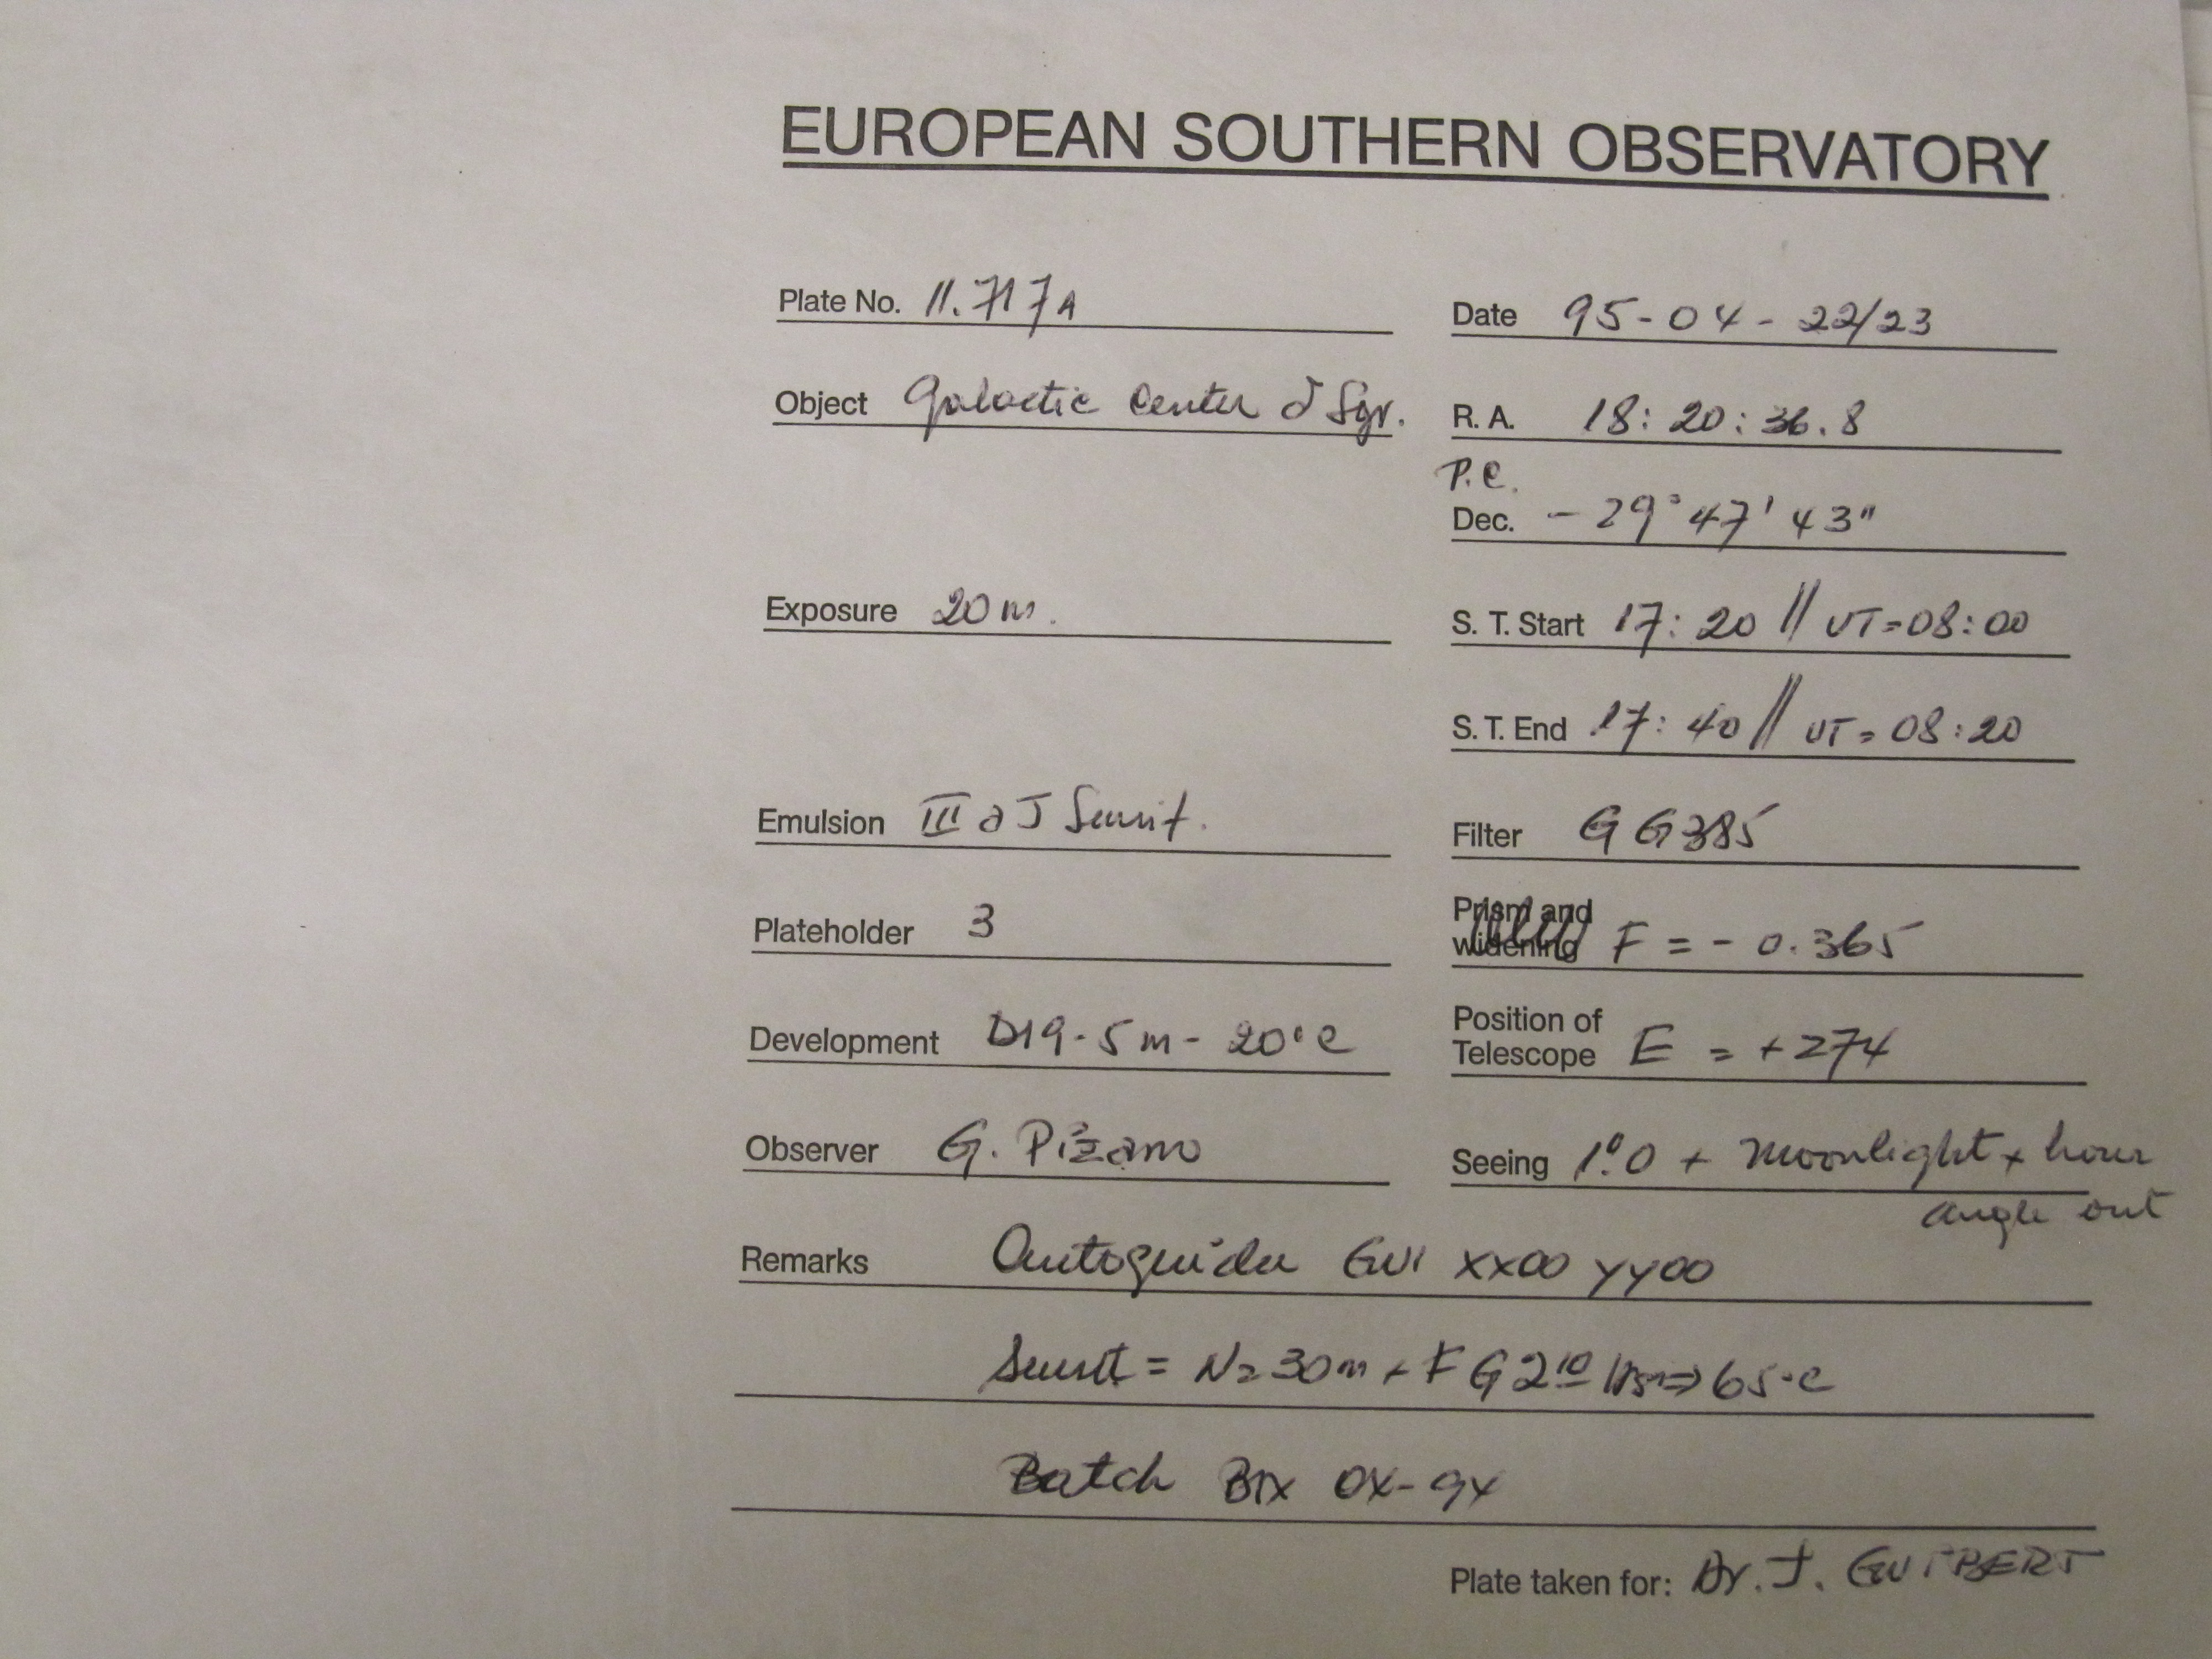 EUROPEAN SOUTHERN OBSERVATORY
Plate No. 11.717A
Date 95-04-22/23
Object Galactic Center δ Sgr.
R. A. 18:20:36.8
P.C.
Dec. -29°47'43"
Exposure 20m.
S. T. Start 17:20 // UT=08:00
S. T. End 17:40 // UT=08:20
Emulsion III a J Sensit.
Filter GG385
Plateholder 3
Prism and
widening F = - 0.365
Development D19-5m-20°C
Position of
Telescope E = +274
Observer G. Pizarro
Seeing 1".0 + moonlight + hour
angle out
Remarks Autoguider XX00 YY00
Sensit = N2 30m + F G 2 => 65°C
Batch
Plate taken for: Dr. J. GUIBERT